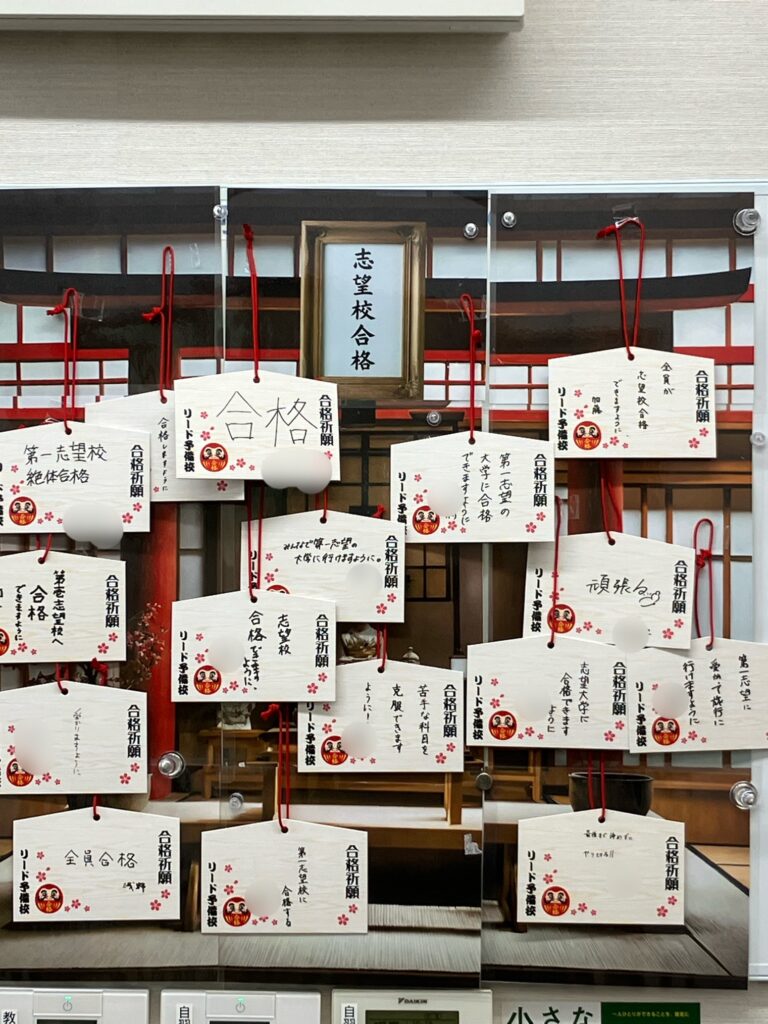 志望校合格
全員が
志望校合格
できますように
加藤
合格祈願
リード予備校
合格
合格祈願
リード予備校
合格しますように
第一志望校
絶体合格
第一志望の
大学に合格
できますように
合格祈願
リード予備校
みんなで第一志望の
大学に行けますように。
合格祈願
頑張るぞ
合格祈願
リード予備校
第壱志望校へ
合格
できますように
合格祈願
志望校
合格できます
ように
合格祈願
リード予備校
苦手な科目を
克服できます
ように!
合格祈願
リード予備校
志望大学に
合格できます
ように
合格祈願
リード予備校
第一志望に
受かって旅行に
行けますように
リード予備校
受かりますように
合格祈願
全員合格
浅野
合格祈願
リード予備校
第一志望校に
合格する
合格祈願
リード予備校
最後まで諦めずに
やりきる!!
合格祈願
リード予備校
教
自
自
DAIKIN
小さな
一人ひとりができることを、着実に